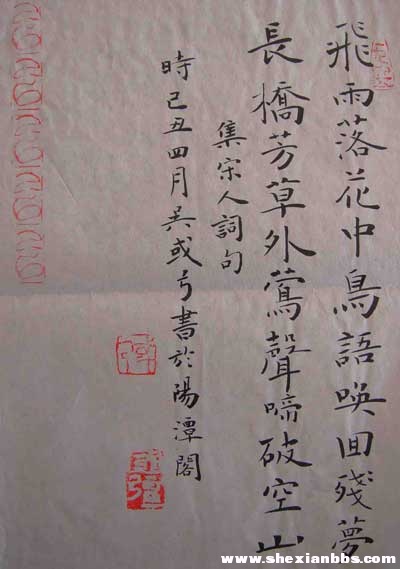 飛雨落花中鳥語喚回殘夢
長橋芳草外鶯聲啼破空山
集宋人詞句
時己丑四月吳或弓書於陽潭閣
www.shexianbbs.com